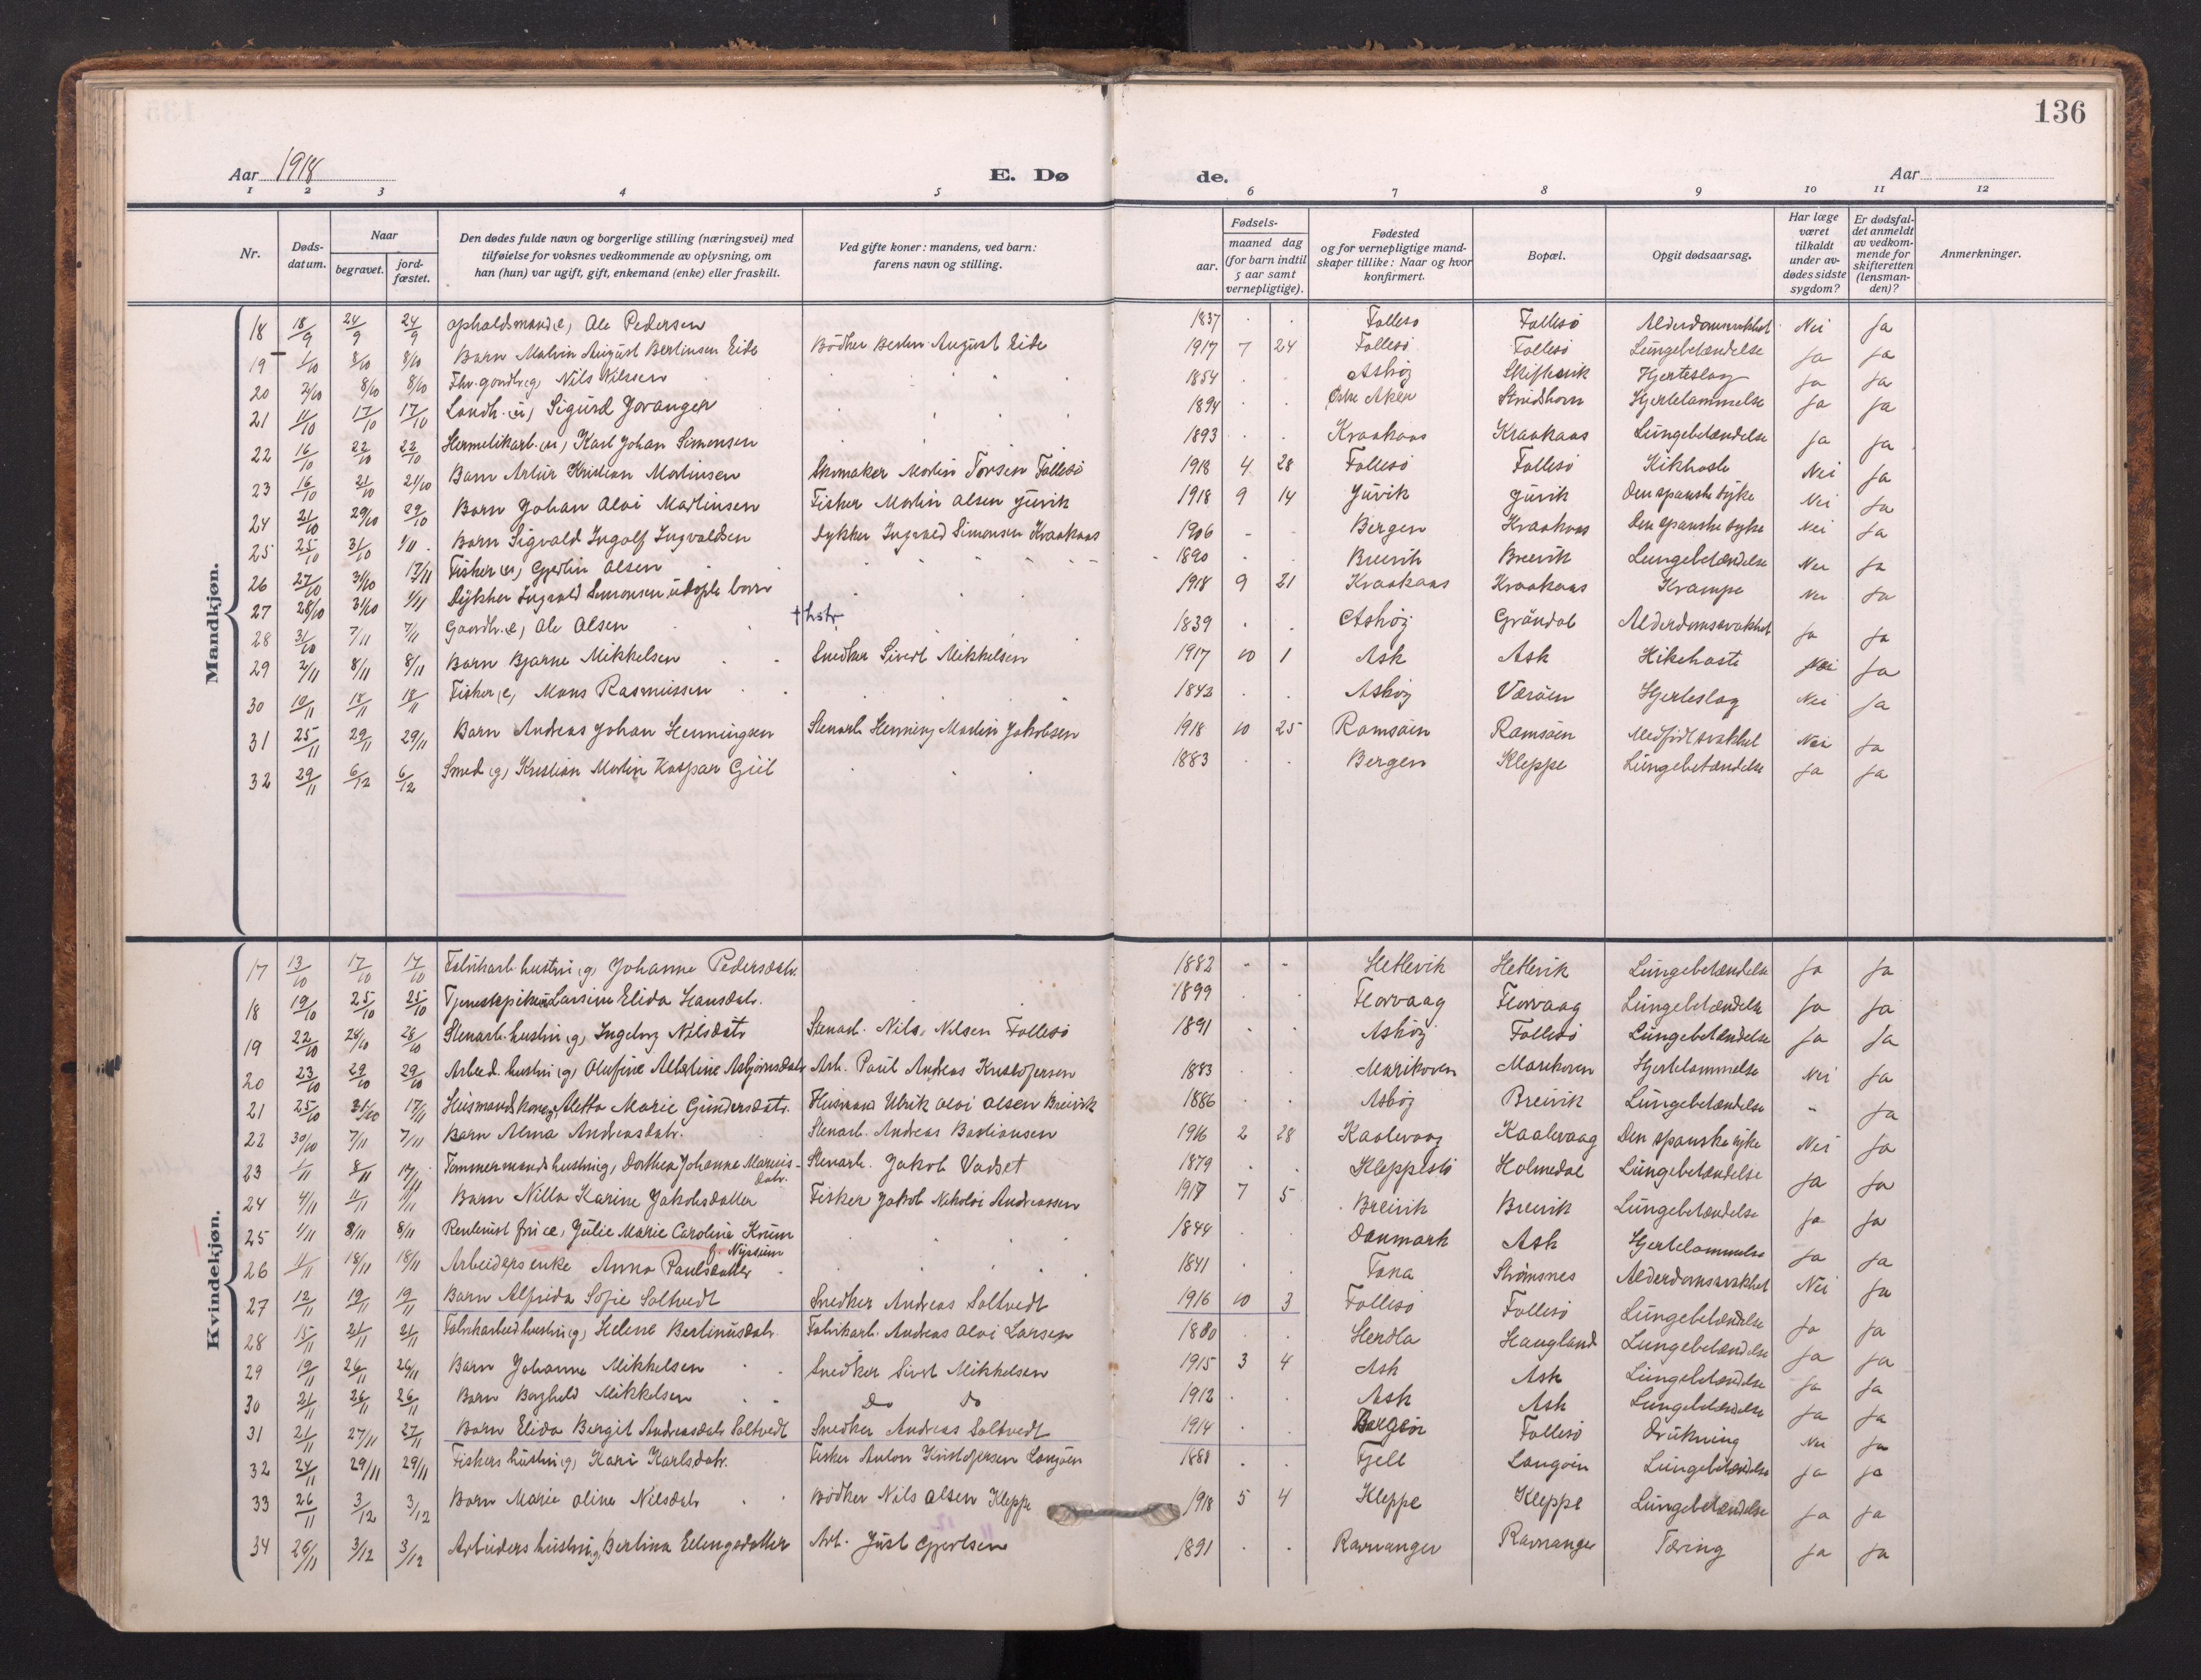 136
Aar 1918
E. Dø
de.
Aar
1 2 3 4 5 6 7 8 9 10 11 12
Nr.
Døds-datum.
Naar
begravet.
jord-fæstet.
Den dødes fulde navn og borgerlige stilling (næringsvei) med
tilføielse for voksnes vedkommende av oplysning, om
han (hun) var ugift, gift, enkemand (enke) eller fraskilt.
Ved gifte koner: mandens, ved barn:
farens navn og stilling.
Fødsels-
aar.
maaned dag
(for barn indtil
5 aar samt
vernepligtige).
Fødested
og for vernepligtige mand-
skaper tillike: Naar og hvor
konfirmert.
Bopæl.
Opgit dødsaarsag.
Har læge
været
tilkaldt
under av-
dødes sidste
sygdom?
Er dødsfal-
det anmeldt
av vedkom-
mende for
skifteretten
(lensman-
den)?
Anmerkninger.
Mandkjøn.
18 18/9 24/9 24/9 opholdsmand (e) Ole Pedersen 1837 . . Follesø Follesö Alderdomssvakhet Nei Ja
19 1/10 8/10 8/10 Barn Malvin August Bertinsen Eide Bödker Bertin August Eide 1917 7 24 Follesö Follesö Lungebetændelse Ja Ja
20 2/10 8/10 8/10 Fhv. gaardbr. (g) Nils Nilssen 1854 . . Askøy Skiftesvik Hjerteslag Ja Ja
21 11/10 17/10 17/10 Landh. (u) Sigurd Joranger 1894 . . Østre Aker Strudshavn Hjertelammelse Ja Ja
22 16/10 22/10 22/10 Hermetikarb. (u) Karl Johan Simonsen 1893 . . Kraakaas Kraakaas Lungebetændelse Ja Ja
23 16/10 21/10 21/10 Barn Artur Kristian Martinsen Skomaker Martin Torsen Follesö 1918 4 28 Follesö Follesö Kikhoste Nei Ja
24 21/10 29/10 29/10 Barn Johan Aloi Martinsen Fisker Martin Olsen Juvik 1918 9 14 Juvik Juvik Den spanske syke Nei Ja
25 25/10 31/10 1/11 Barn Sigvald Ingolf Ingvaldsen Dykker Ingvald Simonsen Kraakaas 1906 - - Bergen Kraakaas Den spanske syke Nei Ja
26 27/10 31/10 17/11 Fisker (u) Gjertin Olsen 1890 . . Breivik Breivik Lungebetændelse Nei Ja
27 28/10 31/10 1/11 Dykker Ingvald Simonsen udöpte barn 1918 9 21 Kraakaas Kraakaas Krampe Nei Ja
28 31/10 7/11 7/11 Gaardbr. (e) Ole Olsen 1839 . . Askøy Gröndal Alderdomssvakhet Ja Ja
29 2/11 8/11 8/11 Barn Bjarne Mikkelsen Snedker Sivert Mikkelsen 1917 10 1 Ask Ask Kikehoste Nei Ja
30 10/11 18/11 18/11 Fisker (e) Mons Rasmussen 1842 . . Askøy Værøen Hjerteslag Nei Ja
31 25/11 29/11 29/11 Barn Andreas Johan Henningsen Stenarb. Henning Martin Jakobsen 1918 10 25 Ramsøien Ramsøien Medfödt svakhet Nei Ja
32 29/11 6/12 6/12 Smed (g) Kristian Martin Kaspar Giil 1883 . . Bergen Kleppe Lungebetændelse Ja Ja
Kvindekjøn.
17 13/10 17/10 17/10 Fabrikarb. hustru (g) Johanne Pedersdatr. 1882 - - Hetlevik Hetlevik Lungebetændelse Ja Ja
18 19/10 25/10 25/10 Tjenestepike Larsine Elida Hansdatr. 1899 . . Florvaag Florvaag Lungebetændelse Ja Ja
19 22/10 28/10 28/10 Stenarb. hustru (g) Ingeborg Nilsdatr. Stenarb. Nils Nilsen Follesö 1891 . . Askøy Follesö Lungebetændelse Ja Ja
20 23/10 29/10 29/10 Arbeid. hustru (g) Olufine Albertine Asbjörnsdatr. Arb. Paul Andreas Kristofersen 1883 . . Marikoven Marikoven Hjertelammelse Nei Ja
21 25/10 31/10 17/11 Husmandskone (g) Aletta Marie Gundersdatr. Husmand Ulrik Aloi Olsen Breivik 1886 . . Askøy Breivik Lungebetændelse - Ja
22 30/10 7/11 7/11 Barn Alma Andreasdatr. Stenarb. Andreas Bastiansen 1916 2 28 Kaalevaag Kaalevaag Den spanske syke Nei Ja
23 1/11 8/11 17/11 Tømmermands hustru (g) Dorthea Johanne Marius-datr. Stenarb. Jakob Vadset 1879 . . Kleppestö Holmedal Lungebetændelse Ja Ja
24 4/11 11/11 11/11 Barn Nilla Karine Jakobsdatter Fisker Jakob Nikolai Andreassen 1917 7 5 Breivik Breivik Lungebetændelse Ja Ja
25 4/11 8/11 8/11 Rentenist frue (e) Julie Marie Caroline Krum f. Nyssum 1844 . . Danmark Ask Hjertelammelse Ja Ja
26 11/11 18/11 18/11 Arbeiders enke Anna Paulsdatter 1841 . . Fana Strømsnes Alderdomssvakhet Nei Ja
27 12/11 19/11 19/11 Barn Alfrida Sofie Soltvedt Snedker Andreas Soltvedt 1916 10 3 Follesö Follesö Lungebetændelse Ja Ja
28 15/11 21/11 21/11 Fabrikarbeid hustru (g) Helene Bertinusdatr. Fabrikarb. Andreas Aloi Larsen 1880 . . Herdla Haugland Lungebetændelse Ja Ja
29 19/11 26/11 26/11 Barn Johanne Mikkelsen Snedker Sivert Mikkelsen 1915 3 4 Ask Ask Lungebetændelse Ja Ja
30 21/11 26/11 26/11 Barn Borghild Mikkelsen Do Do 1912 . . Ask Ask Lungebetændelse Ja Ja
31 21/11 27/11 27/11 Barn Elida Bergit Andreasdatr. Soltvedt Snedker Andreas Soltvedt 1914 . . Bergen Follesö Drukning Nei Ja
32 24/11 29/11 29/11 Fiskers hustru (g) Kari Karlsdatr. Fisker Anton Kristofersen Langöen 1888 . . Fjell Langöen Lungebetændelse Ja Ja
33 26/11 3/12 3/12 Barn Marie Oline Nilsdatr. Bödker Nils Olsen Kleppe 1918 5 4 Kleppe Kleppe Lungebetændelse Ja Ja
34 26/11 3/12 3/12 Arbeiders hustru (g) Bertina Erlingsdatter Arb. Just Gjertsen 1891 . . Ravnanger Ravnanger Tæring Ja Ja